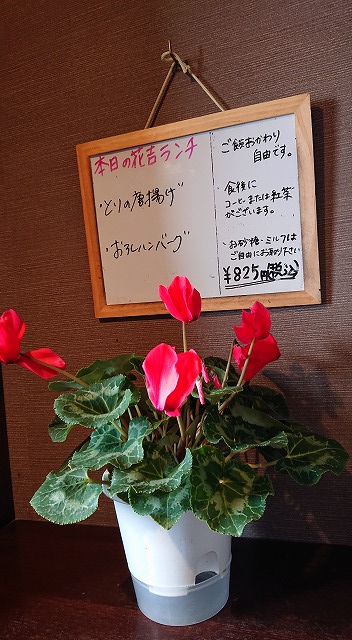 本日の花吉ランチ
・とりの唐揚げ
・おろしハンバーグ
ご飯おかわり
自由です。
食後に
コーヒーまたは紅茶
がございます。
・お砂糖・ミルクは
ご自由にお取り下さい
¥825円(税込)